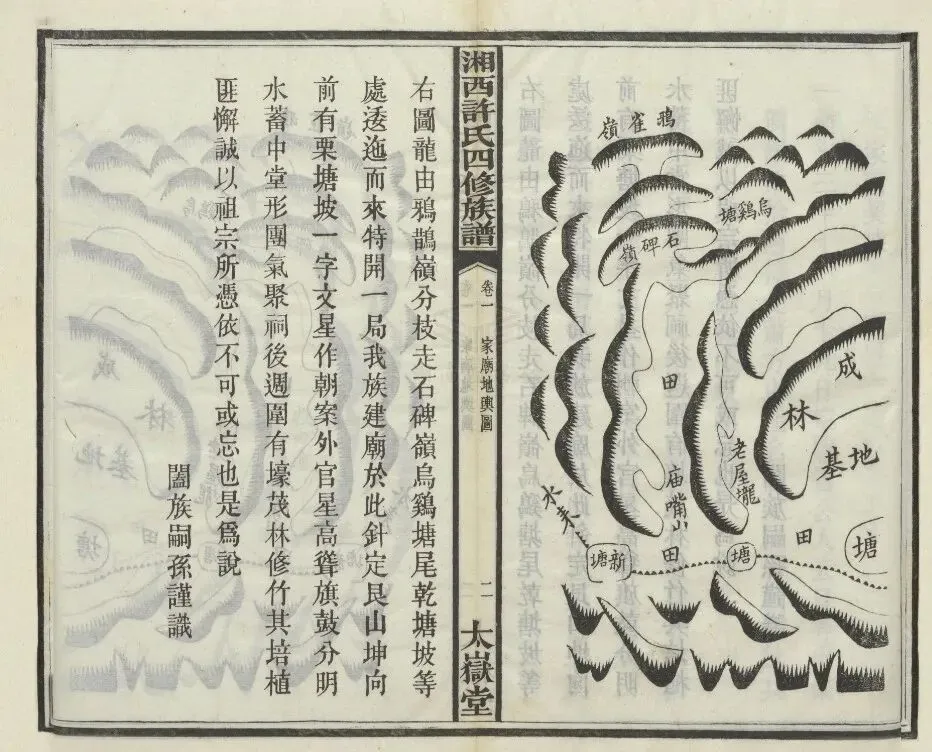 鴉雀嶺
烏鷄塘
石碑嶺
成林
基地
田
老屋壠
庙嘴山
水来
田
田
塘
塘
新塘
湘西許氏四修族譜
卷一
家廟地輿圖
二
太嶽堂
右圖龍由鴉鵲嶺分枝走石碑嶺烏鷄塘尾乾塘坡等
處逶迤而來特開一局我族建廟於此針定艮山坤向
前有栗塘坡一字文星作朝案外官星高聳旗鼓分明
水蓄中堂形團氣聚祠後週圍有壕茂林修竹其培植
匪懈誠以祖宗所憑依不可或忘也是爲說
闔族嗣孫謹識